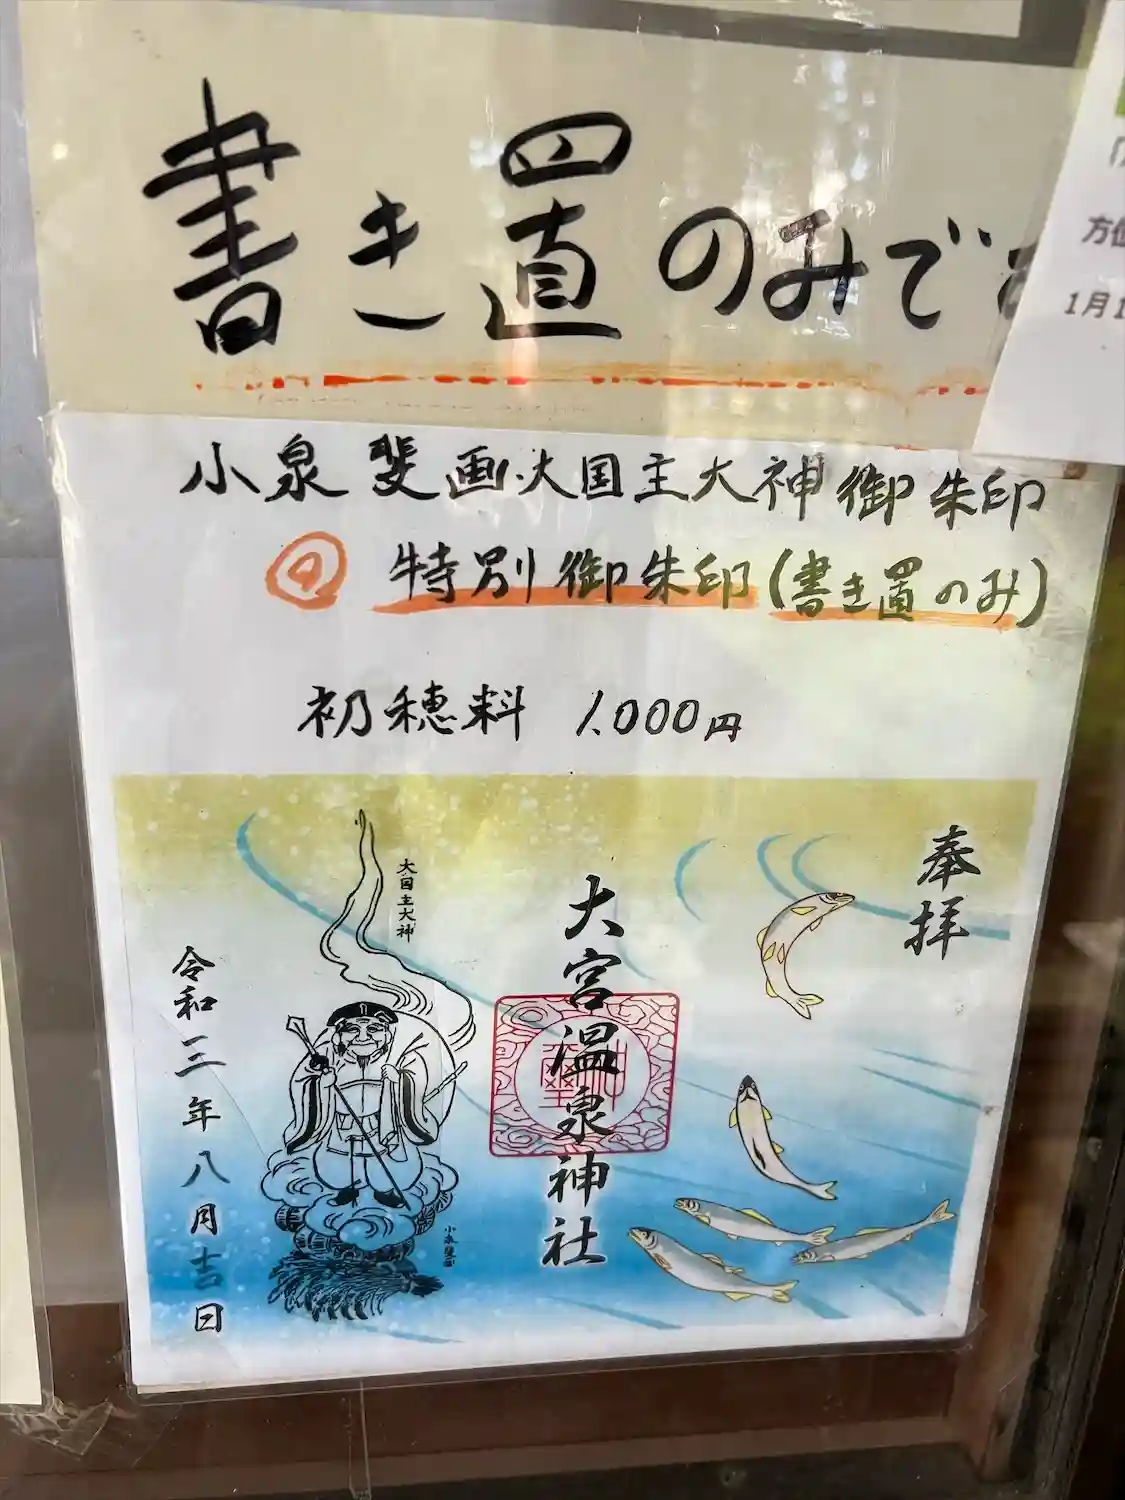 書き置のみで
方
1月1
小泉斐画大国主大神御朱印
特別御朱印(書き置のみ)
初穂料 1,000円
奉拝
大宮温泉神社
大国主大神
小泉斐画
令和三年八月吉日